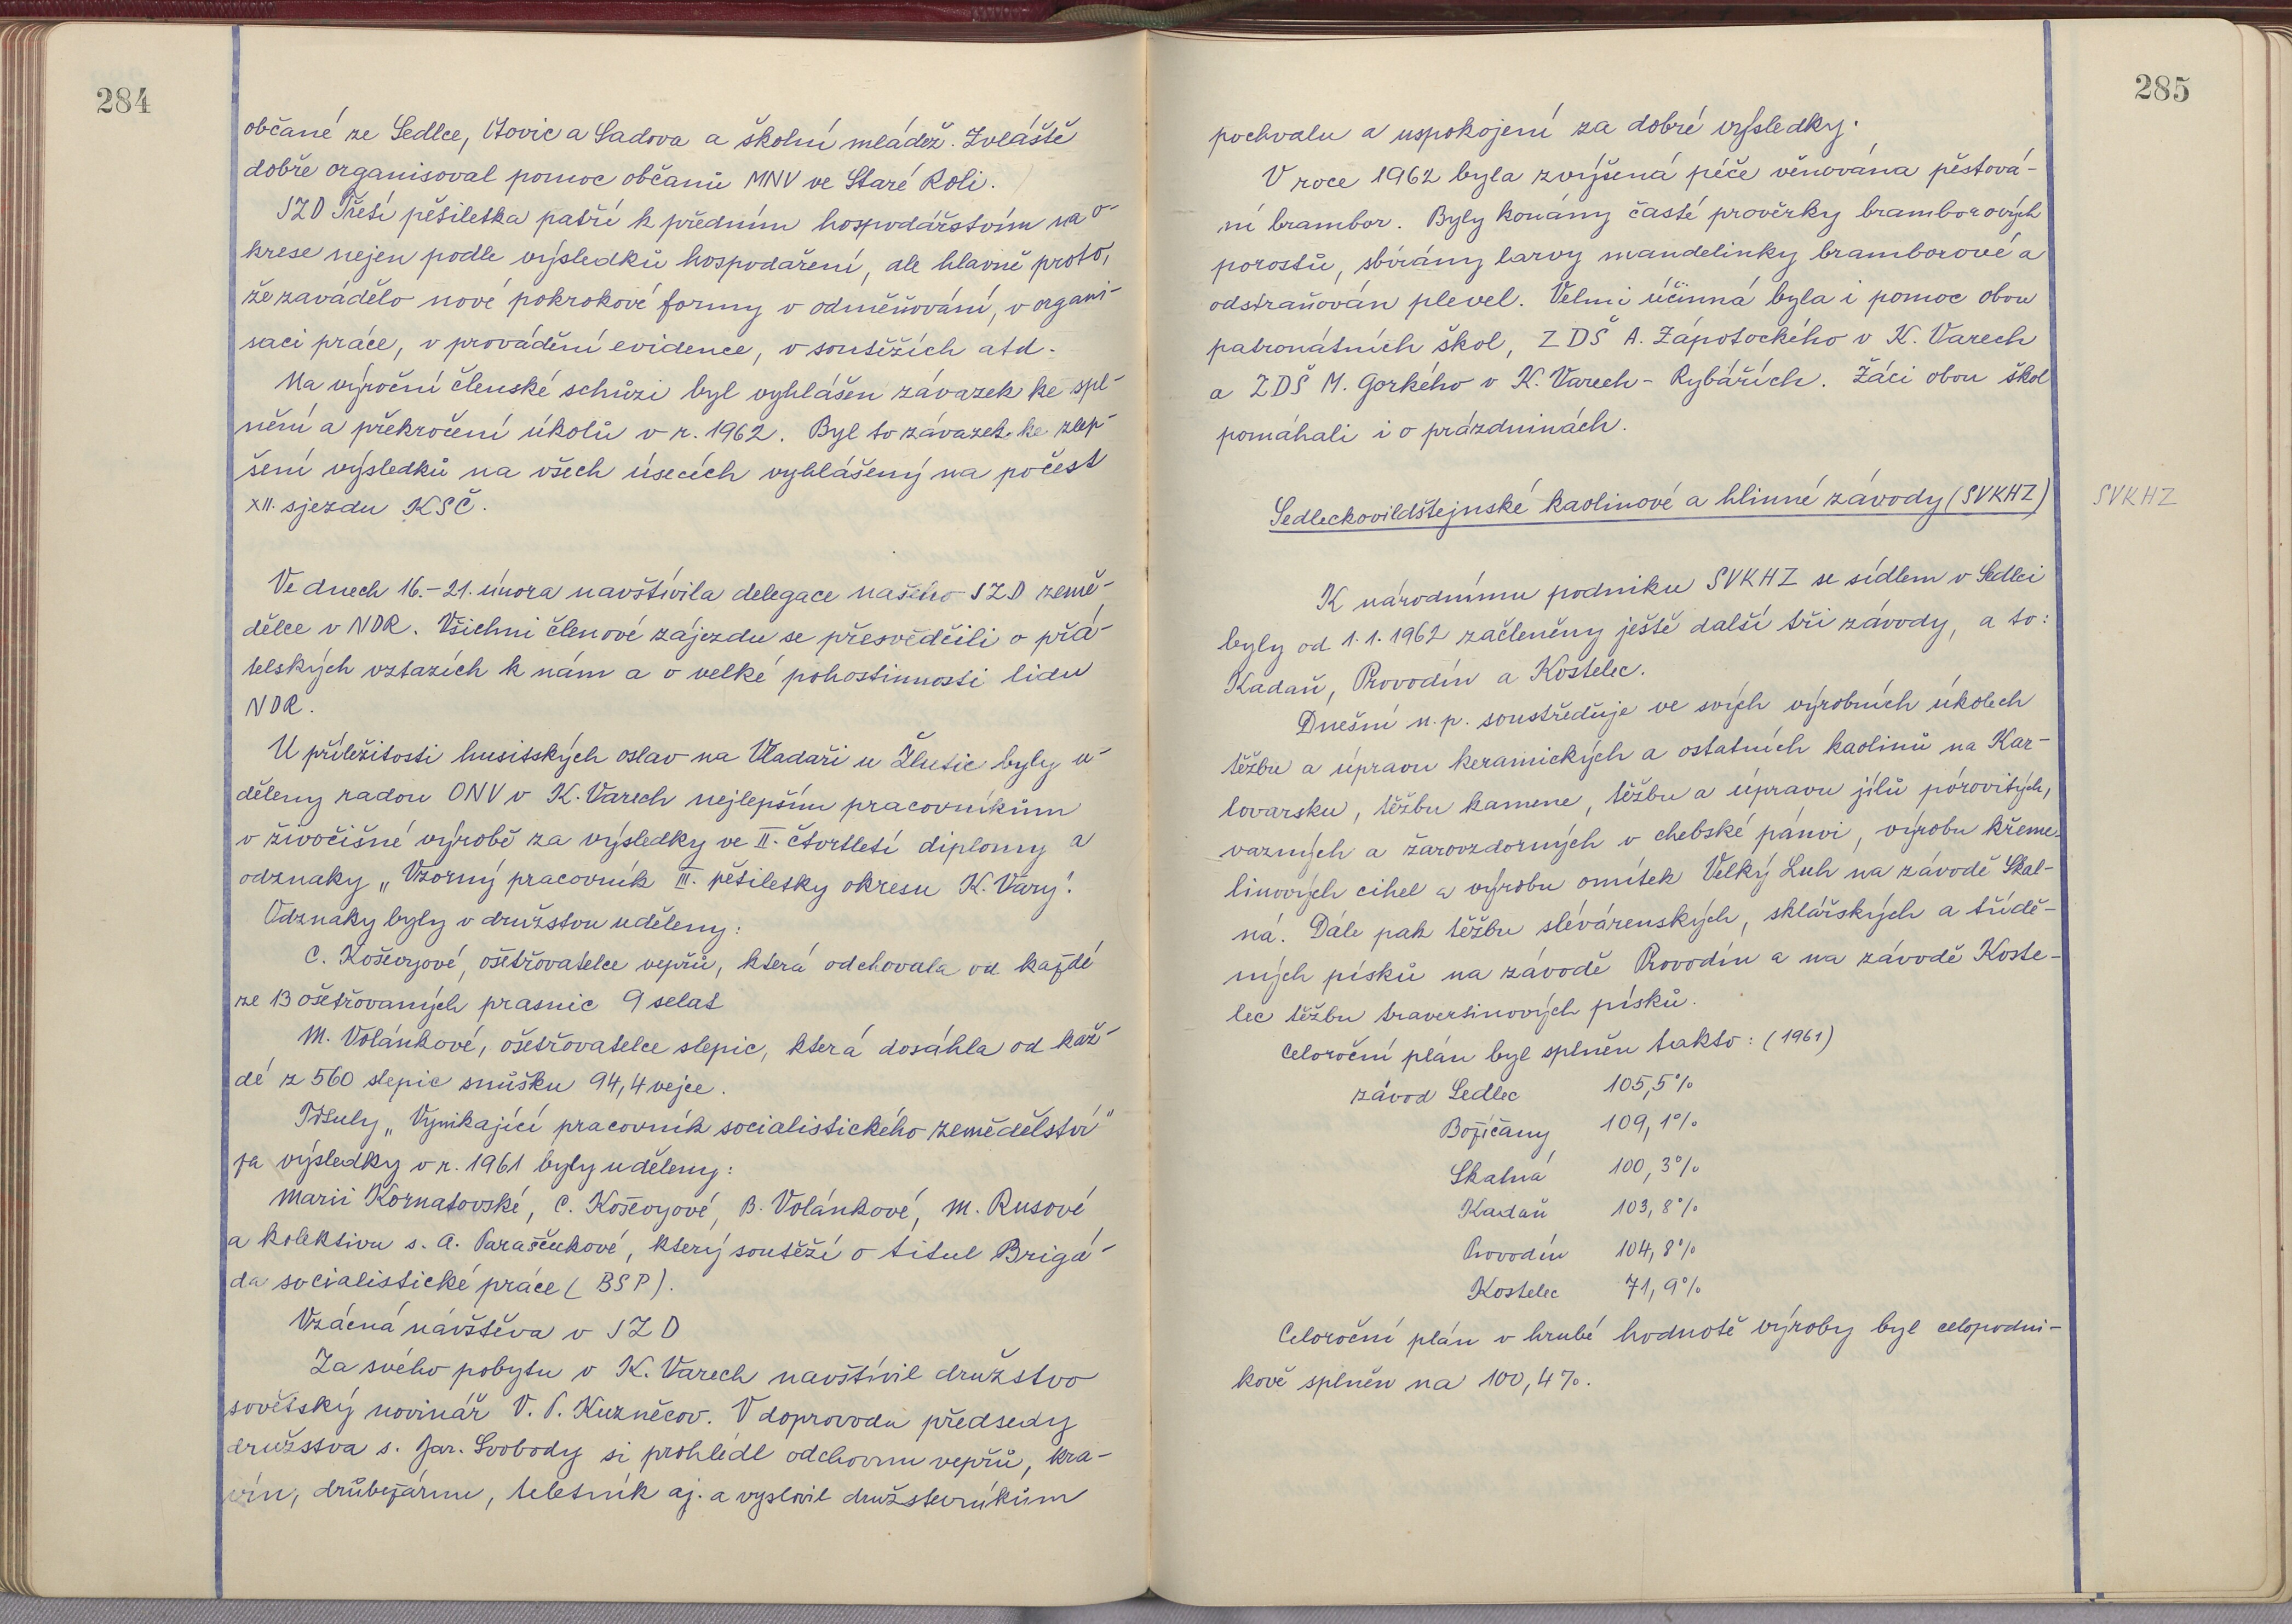 284
občané ze Sedlce, Otovic a Sadova a školní mládež. Zvláště
dobře organisoval pomoc občanů MNV ve Staré Roli.
JZD Třetí pětiletka patří k předním hospodářstvím na o-
krese nejen podle výsledků hospodaření, ale hlavně proto,
že zavádělo nové pokrokové formy v odměňování, v organi-
saci práce, v provádění evidence, v soutěžích atd.
Na výroční členské schůzi byl vyhlášen závazek ke spl-
nění a překročení úkolů v r. 1962. Byl to závazek ke zlep-
šení výsledků na všech úsecích vyhlášený na počest
XII. sjezdu KSČ.
Ve dnech 16.-21. února navštívila delegace našeho JZD země-
dělce v NDR. Všichni členové zájezdu se přesvědčili o přá-
telských vztazích k nám a o velké pohostinnosti lidu
NDR.
U příležitosti husitských oslav na Vladaři u Žlutic byly u-
děleny radou ONV v K. Varech nejlepším pracovníkům
v živočišné výrobě za výsledky ve II. čtvrtletí diplomy a
odznaky „Vzorný pracovník III. pětiletky okresu K. Vary".
Odznaky byly v družstvu uděleny:
C. Koševyové, ošetřovatelce vepřů, která odchovala od každé
ze 13 ošetřovaných prasnic 9 selat
M. Volánkové, ošetřovatelce slepic, která dosáhla od kaž-
dé z 560 slepic snůšku 94,4 vejce.
Tituly „Vynikající pracovník socialistického zemědělství"
za výsledky v r. 1961 byly uděleny:
Marii Kornatovské, C. Koševyové, B. Volánkové, M. Rusové
a kolektivu s. A. Paraščukové, který soutěží o titul Brigá-
da socialistické práce (BSP).
Vzácná návštěva v JZD
Za svého pobytu v K. Varech navštívil družstvo
sovětský novinář V. P. Kuzněcov. V doprovodu předsedy
družstva s. Jar. Svobody si prohlédl odchovnu vepřů, kra-
vín, drůbežárnu, teletník aj. a vyslovil družstevníkům
285
pochvalu a uspokojení za dobré výsledky.
V roce 1962 byla zvýšená péče věnována pěstová-
ní brambor. Byly konány časté prověrky bramborových
porostů, sbírány larvy mandelinky bramborové a
odstraňován plevel. Velmi účinná byla i pomoc obou
patronátních škol, ZDŠ A. Zápotockého v K. Varech
a ZDŠ M. Gorkého v K. Varech - Rybářích. Žáci obou škol
pomáhali i o prázdninách.
Sedleckovildštejnské kaolinové a hlinné závody (SVKHZ)
SVKHZ
K národnímu podniku SVKHZ se sídlem v Sedlci
byly od 1.1.1962 začleněny ještě další tři závody, a to:
Kadaň, Provodín a Kostelec.
Dnešní n.p. soustřeďuje ve svých výrobních úkolech
těžbu a úpravu keramických a ostatních kaolinů na Kar-
lovarsku, těžbu kamene, těžbu a úpravu jílů pórovitých,
vazných a žárovzdorných v chebské pánvi, výrobu křeme-
linových cihel a výrobu omítek Velký Luh na závodě Skal-
ná. Dále pak těžbu slévárenských, sklářských a třídě-
ných písků na závodě Provodín a na závodě Koste-
lec těžbu travertinových písků.
Celoroční plán byl splněn takto: (1961)
závod Sedlec 105,5%
Božičany 109,1%
Skalná 100,3%
Kadaň 103,8%
Provodín 104,8%
Kostelec 71,9%
Celoroční plán v hrubé hodnotě výroby byl celopodni-
kově splněn na 100,4%.